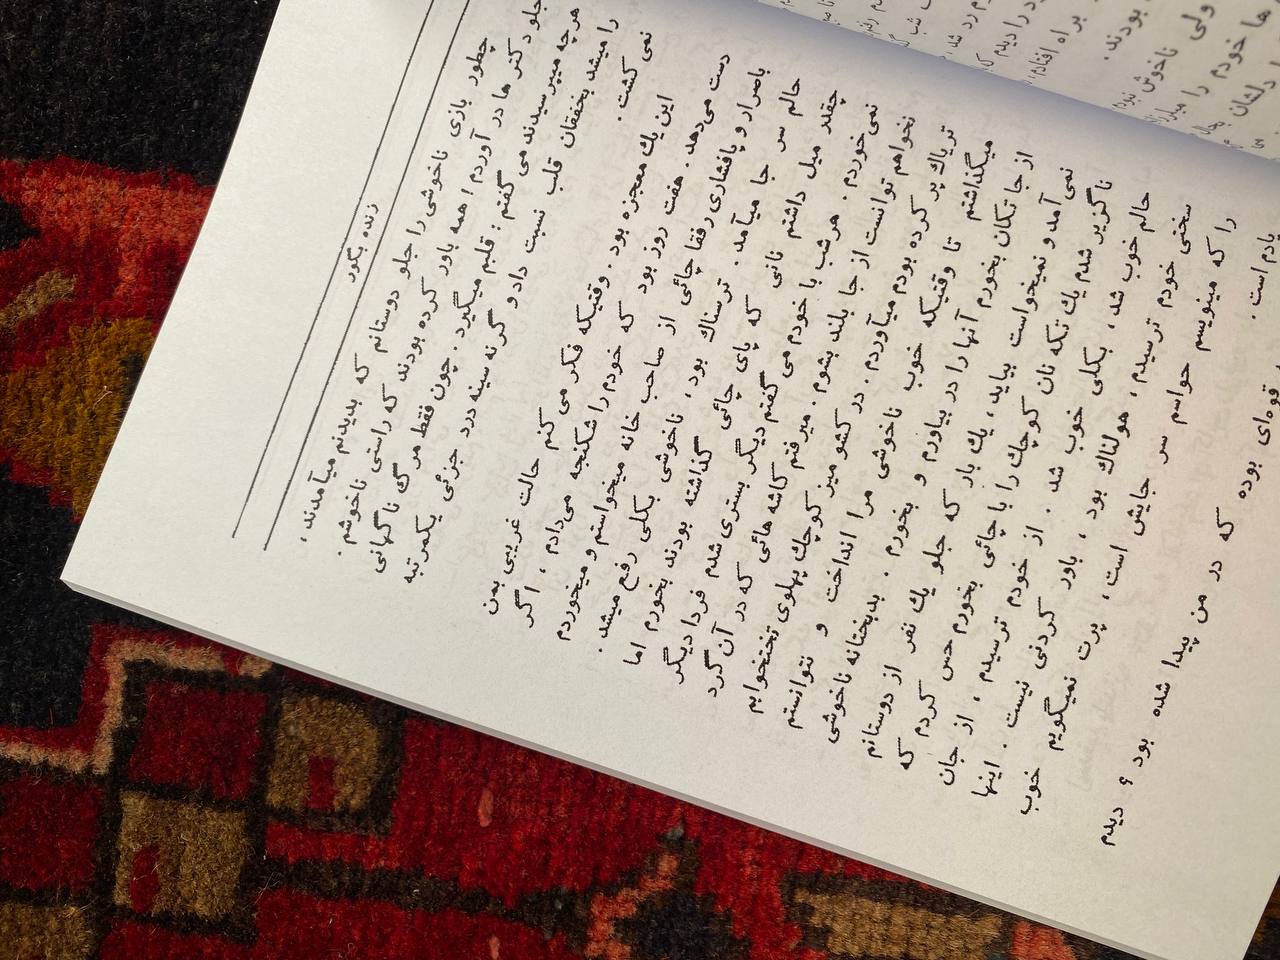 زنده بگور
چطور بازی ناخوشی را جلو دوستانم که بدیدنم میآمدند،
جلو دکترها در آوردم! همه باور کرده بودند که راستی ناخوشم.
هرچه میپرسیدند می گفتم: قلبم میگیرد. چون فقط مرگ ناگهانی
را میشد بخفقان قلب نسبت داد و گرنه سینه درد جزئی یکمرتبه
نمی کشت.
این یك معجزه بود. وقتیکه فکر می کنم حالت غریبی بمن
دست می‌دهد. هفت روز بود که خودم را شکنجه می‌دادم، اگر
باصرار و پافشاری رفقا چائی از صاحب خانه میخواستم و میخوردم
حالم سر جا میآمد. ترسناك بود، ناخوشی بکلی رفع میشد.
چقدر میل داشتم نانی که پای چائی گذاشته بودند بخورم اما
نمی خوردم. هرشب با خودم می گفتم دیگر بستری شدم فردا دیگر
نخواهم توانست از جا بلند بشوم. میرفتم کاشه هائی که در آن گرد
تریاك پر کرده بودم میآوردم. در کشو میز کوچك پهلوی تختخوابم
میگذاشتم تا وقتیکه خوب ناخوشی مرا انداخت و نتوانستم
از جا تکان بخورم آنها را در بیاورم و بخورم. بدبختانه ناخوشی
نمی آمد و نمیخواست بیاید، یك بار که جلو یك نفر از دوستانم
ناگزیر شدم یك تکه نان کوچك را با چائی بخورم حس کردم که
حالم خوب شد، بکلی خوب شد. از خودم ترسیدم، از جان
سختی خودم ترسیدم، هولناك بود، باور کردنی نیست. اینها
را که مینویسم حواسم سر جایش است، پرت نمیگویم خوب
یادم است.
قوه‌ای بوده که در من پیدا شده بود؟ دیدم
را دیدم
براه افتادم
بودند.
ولی ناخوش نبودم
ها خودم را
دلشان